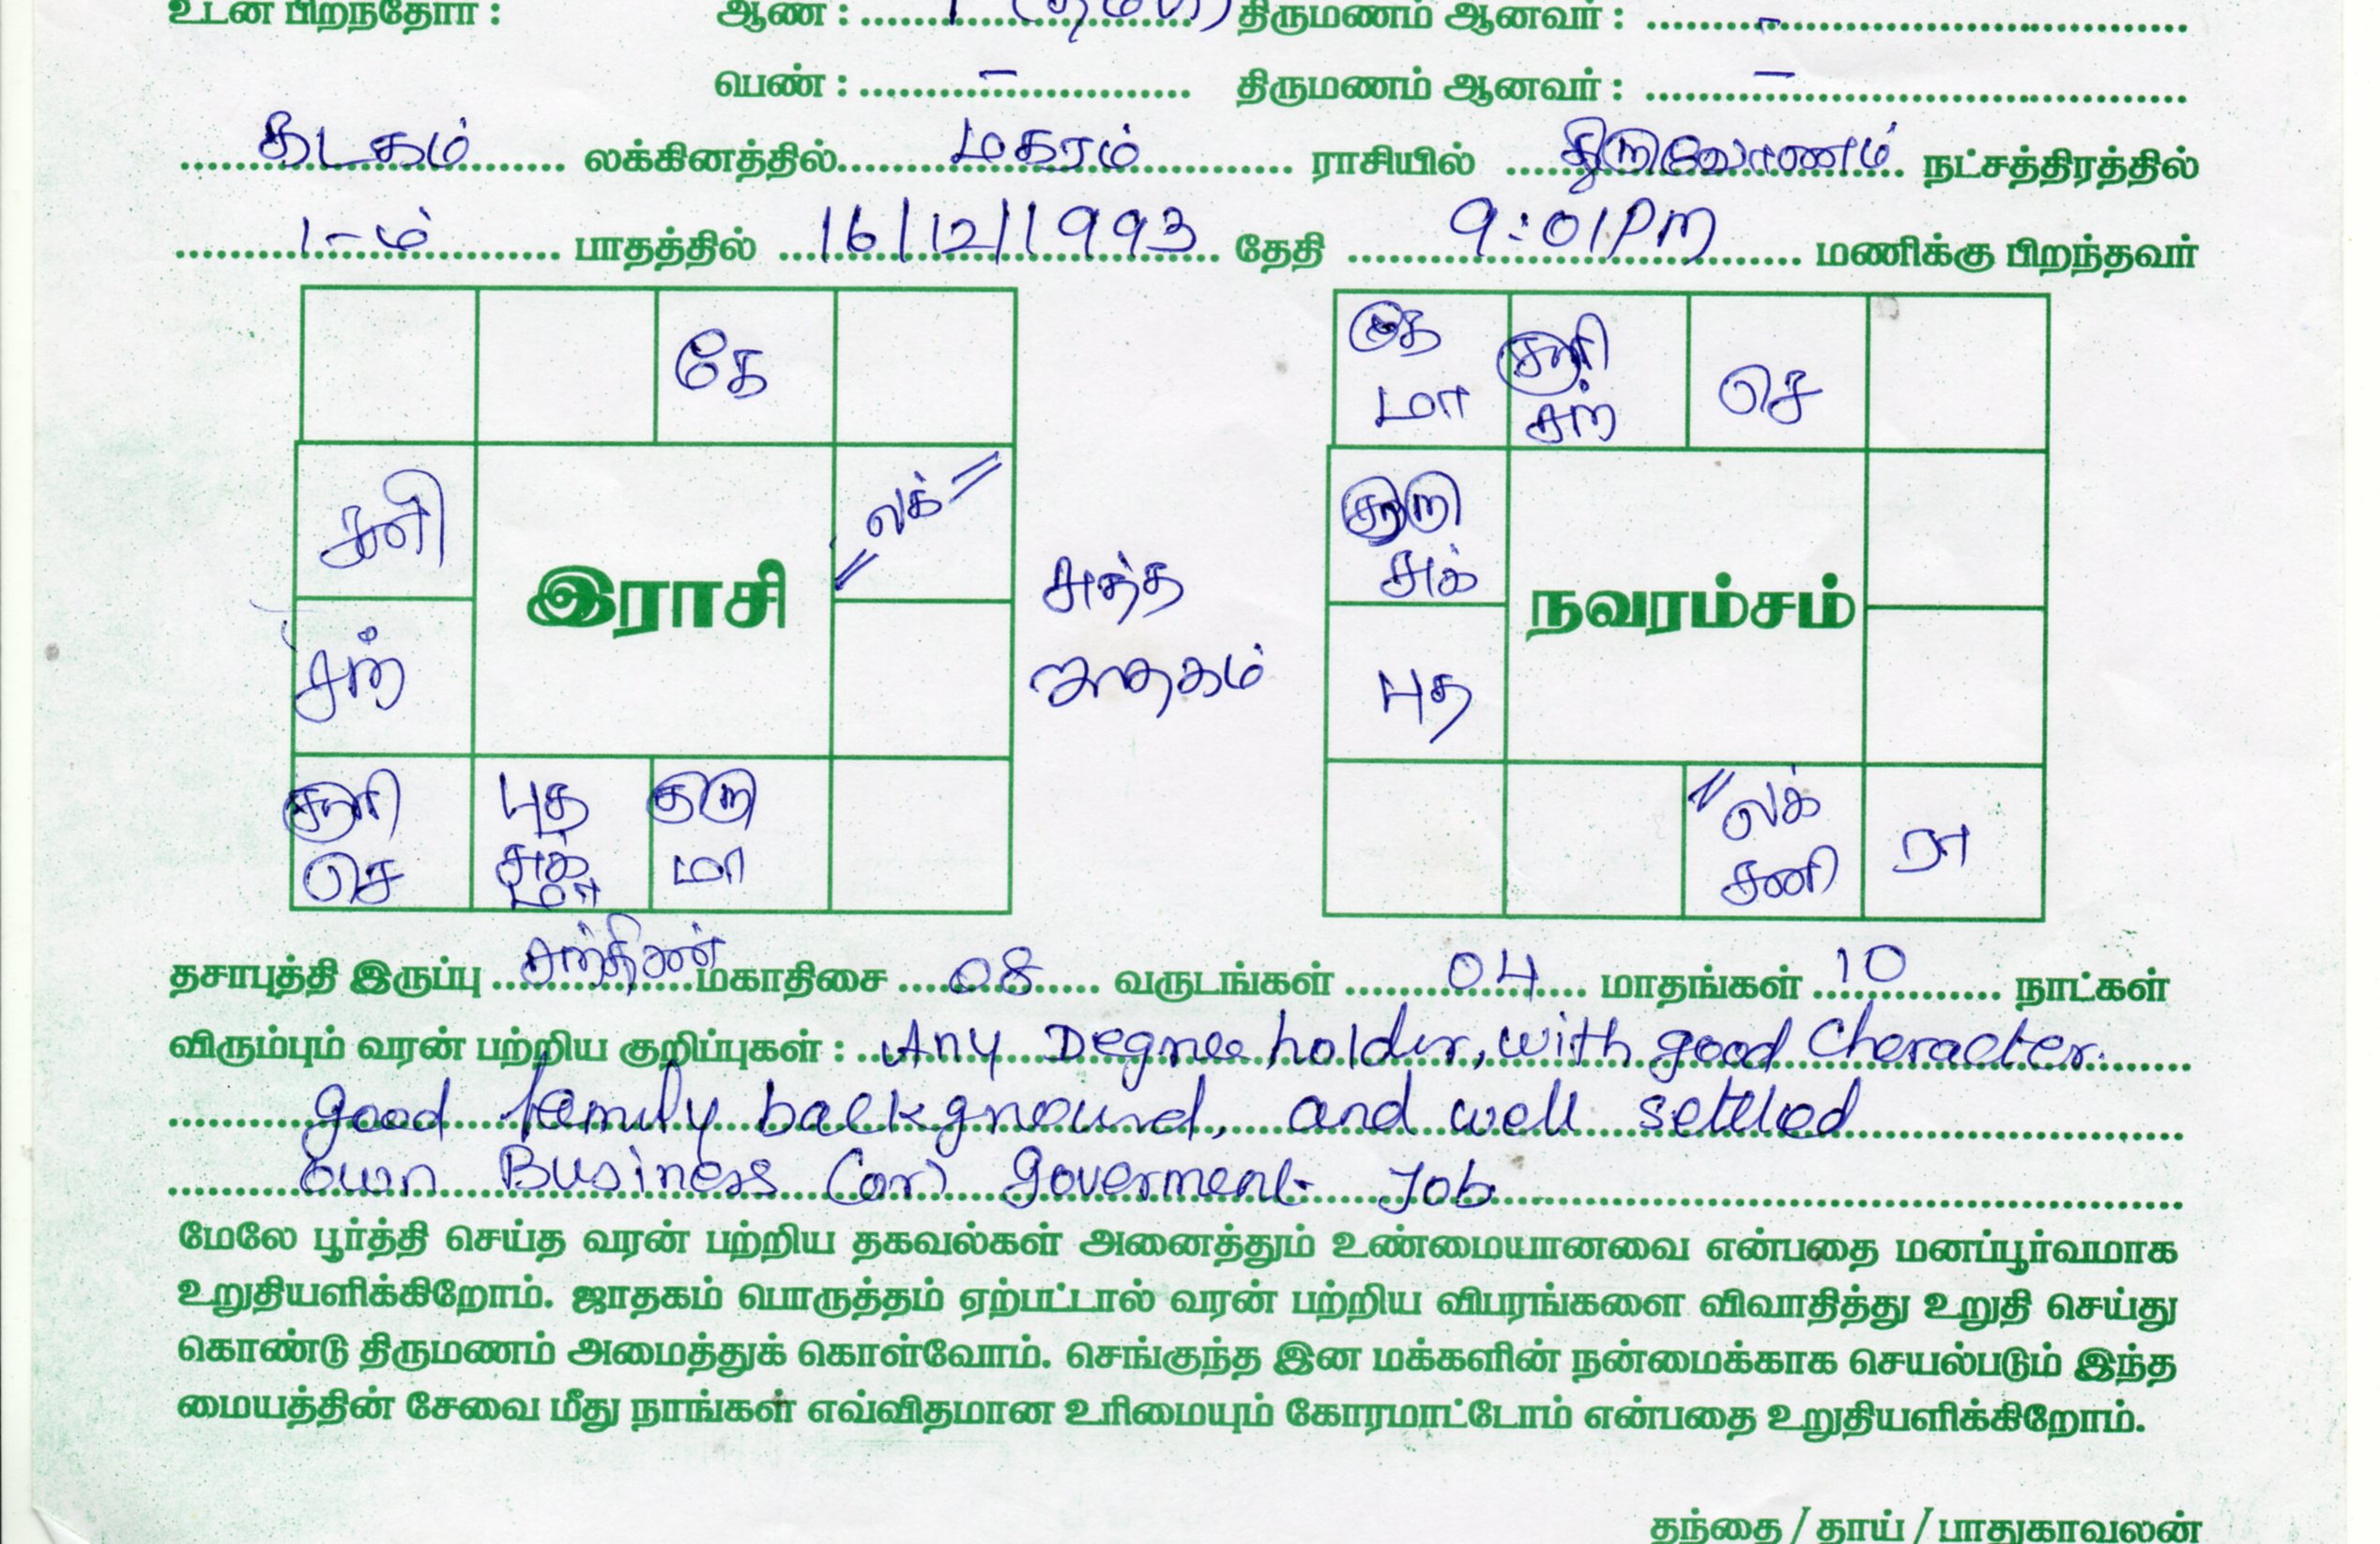 உடன் பிறந்தோர் : ஆண் : ........ 1 (தம்பி) திருமணம் ஆனவர் : ........ -
பெண் : ........ - ........ திருமணம் ஆனவர் : ........ - ........
கடகம் லக்கினத்தில் மகரம் ராசியில் திருவோணம் நட்சத்திரத்தில்
1-ம் பாதத்தில் 16/12/1993 தேதி 9:01PM மணிக்கு பிறந்தவர்
கே
சனி
லக்
சந்
சூரி செ
புத சுக் மா
குரு மா
இராசி
சுத்த
ஜாதகம்
கே மா
சூரி சந்
செ
குரு சுக்
புத
லக் சனி
ரா
நவரம்சம்
தசாபுத்தி இருப்பு சந்திரன் மகாதிசை 08 வருடங்கள் 04 மாதங்கள் 10 நாட்கள்
விரும்பும் வரன் பற்றிய குறிப்புகள் : Any Degree holder, with good Cheracter.
good family background, and well settled
own Business (or) Goverment Job
மேலே பூர்த்தி செய்த வரன் பற்றிய தகவல்கள் அனைத்தும் உண்மையானவை என்பதை மனப்பூர்வமாக
உறுதியளிக்கிறோம். ஜாதகம் பொருத்தம் ஏற்பட்டால் வரன் பற்றிய விபரங்களை விவாதித்து உறுதி செய்து
கொண்டு திருமணம் அமைத்துக் கொள்வோம். செங்குந்த இன மக்களின் நன்மைக்காக செயல்படும் இந்த
மையத்தின் சேவை மீது நாங்கள் எவ்விதமான உரிமையும் கோரமாட்டோம் என்பதை உறுதியளிக்கிறோம்.
தந்தை / தாய் / பாதுகாவலன்